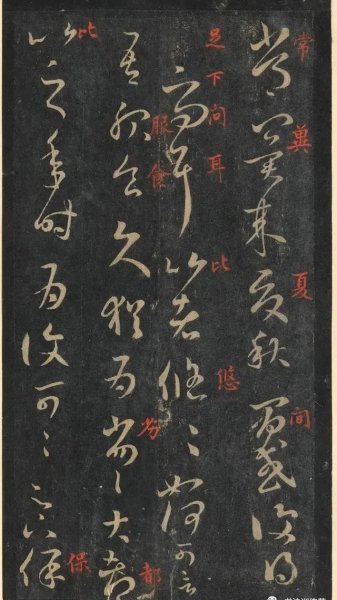 常冀來夏秋間或復得
常 冀 夏 間
足下問耳比者悠〻如何可言
足下問耳 比 悠
吾服食久猶為劣〻大都
服食 劣 都
比之年時為復可〻足下保
比 保